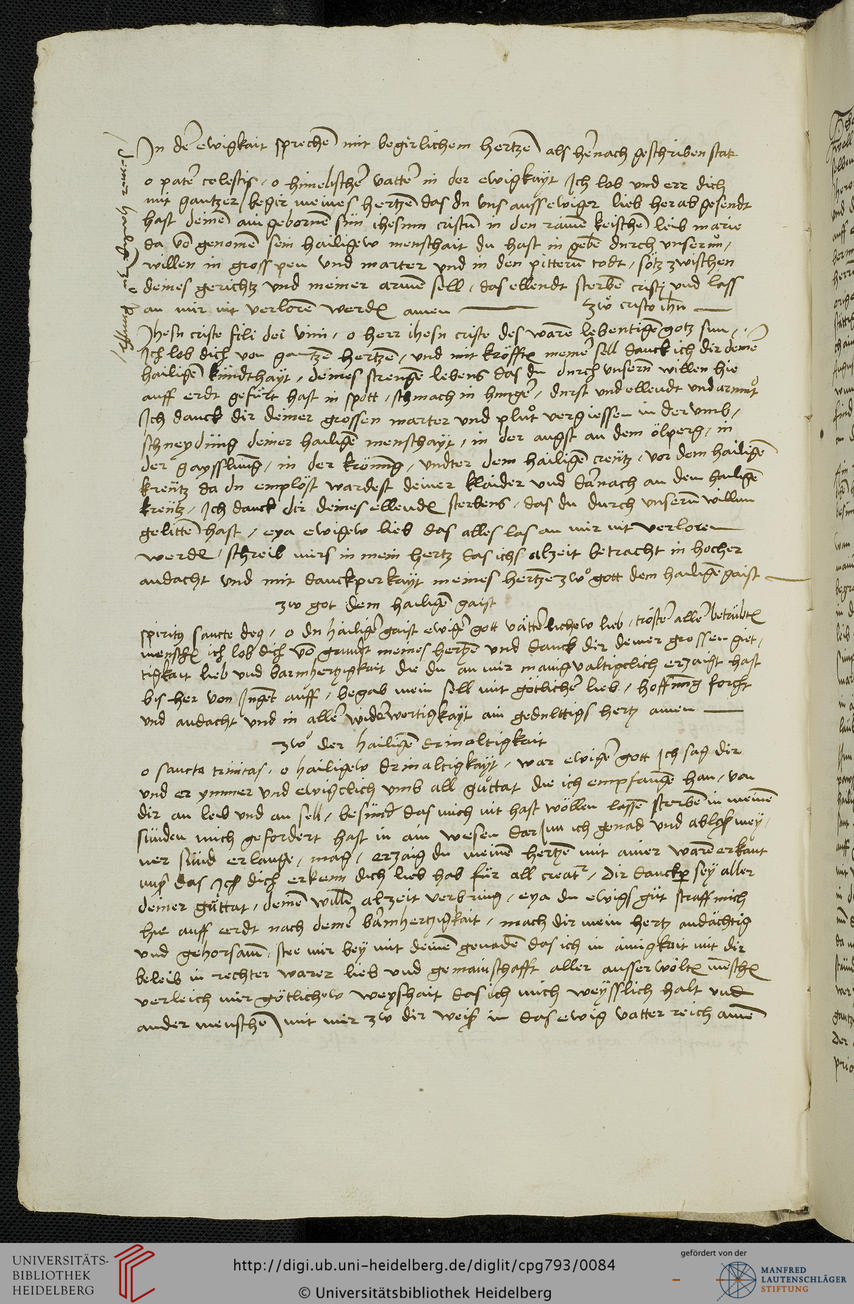 In der ewigkait sprechen mit begirlichem hertzen als hernach geschriben stat
o pater celestis, o himelischer vatter in der ewigkayt Ich lob und err dich
mit gantzer begir meines hertzen das du vns auss ewiger lieb herab gesendt
hast deinen aingebornen sun ihesum cristum in den raine keischen leib marie
da vo genomen sein hailigew menschait du hast in geben durch unsern
willen in gross pen vnd marter vnd in den pittern todt, setz zwischen
deines gerichtz vnd meiner armen sell, das ellendt sterben cristi vnd lass
an mir nit verloren werden amen zw cristo ihu
Ihesu criste fili dei viui, o herr ihesu criste des waren lebentigen gotz sun
Ich lob dich von gantzen hertzen, vnd mit kröfften meiner sell danck ich dir deiner
hailigen kindthayt, deines strengen lebens das du durch vnsern willen hie
auff erdt gefürt hast in spott, schmach in hunger, durst vnd ellendt vnd armut
Ich danck dir deiner grossen marter vnd plut vergiessen in der vmb
schneydung deiner hailigen menschayt, in der angst an dem ölperg, in
der gaysslung, in der krönung, vndter dem hailigen creutz, vor dem hailigen
kreutz da du emplöst wardest deiner klaider vnd darnach an dem hailigen
kreutz, Ich danck dir deines ellenden sterbens, das du durch vnsern willen
gelitten hast, eya ewigew lieb das alles las an mir nit verloren
werden, schreib mirs in mein hertz das ichs alzeit betracht in hocher
andacht vnd mit danckperkayt meines hertzen zwo gott dem hailigen gaist
zw got dem hailigen gaist
spiritus sancte deus, o du hailiger gaist ewiger gott vätterlichew lieb, tröster aller betrübten
menschen ich lob dich vo grundt meines hertzen vnd danck dir deiner grossen güt
tigkait lieb vnd barmhertzigkait die du an mir manigualtigclich erzaigt hast
bis her von Iugent auff, begab mein sell mit götlicher lieb, hoffnung forcht
vnd andacht vnd in aller widerwertigkayt ain gedulttigs hertz amen
zwo der hailigen driualtigkait
o sancta trinitas, o hailigew driualtigkayt, war ewiger gott Ich sag dir
vnd er ymmer vnd ewigclich vmb all guttat die ich empfangen han, von
dir an leib vnd an sell, besunder das mich nit hast wöllen lassen sterben in meinen
sünden mich gefordert hast in ain wesen dar Inn ich genad vnd ablass mey
ner sünd erlange, mag, erzaig du meinen hertzen mit ainer waren erkant
nuss das Ich dich erkenn dich lieb hab für all creatur, dir danckper sey aller
deiner guttat, deinen willen alzeit verbring, eya du ewigs gut straff mich
hie auff erdt nach deiner barmhertzigkait, mach dir mein hertz andächtig
vnd gehorsam, stee mir bey mit deinen genaden das ich in ainigkait mit dir
beleib in rechter warer lieb vnd gemainschafft aller ausserwölten menschen
verleich mir götlichew weyshait das ich mich weysslich halt vnd
ander menschen mit mir zw dir weiss in das ewig vatter reich amen
UNIVERSITÄTS-
BIBLIOTHEK
HEIDELBERG
http://digi.ub.uni-heidelberg.de/diglit/cpg793/0084
© Universitätsbibliothek Heidelberg
gefördert von der
MANFRED
LAUTENSCHLÄGER
STIFTUNG